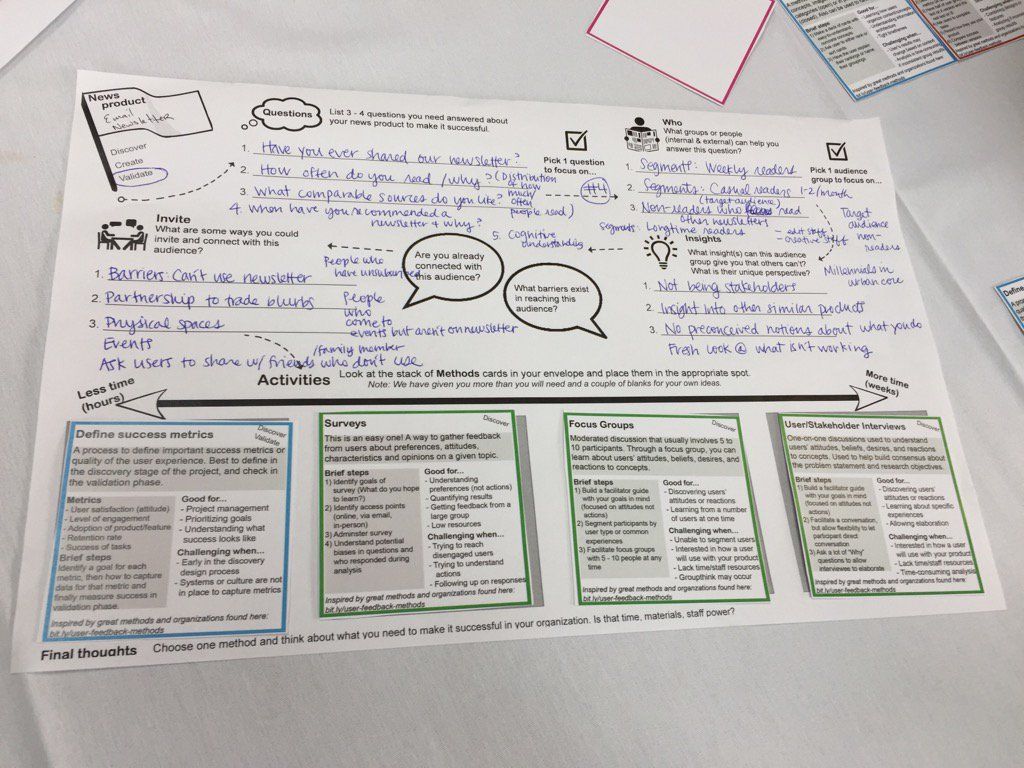 News
product
Email
Newsletter
Discover
Create
Validate
Questions
List 3 - 4 questions you need answered about
your news product to make it successful.
1. Have you ever shared our newsletter?
2. How often do you read / why >(Distribution
& how
much/
often
people read)
3. What comparable sources do you like?
4. When have you recommended a
newsletter & why?
5. Cognitive
understanding
Pick 1 question
to focus on...
#4
Who
What groups or people
(internal & external) can help you
answer this question?
1. Segment: Weekly readers
2. Segments: Casual readers 1-2/month
(target audience)
3. Non-readers who read
other newsletters
Segments: Longtime readers
- edit staff
- creative staff
Pick 1 audience
group to focus on...
Target
audience
non-
readers
Millennials in
urban core
Invite
What are some ways you could
invite and connect with this
audience?
1. Barriers: Can't use newsletter
People who
have unsubscribed
2. Partnership to trade blurbs
3. Physical spaces
Events
People
who
come to
events but aren't on newsletter
Ask users to share w/ friends who don't use
/family member
Are you already
connected with
this audience?
What barriers exist
in reaching this
audience?
Insights
What insight(s) can this audience
group give you that others can't?
What is their unique perspective?
1. Not being stakeholders
2. Insight into other similar products
3. No preconceived notions about what you do
Fresh look @ what isn't working
Less time
(hours)
Activities
Look at the stack of Methods cards in your envelope and place them in the appropriate spot.
Note: We have given you more than you will need and a couple of blanks for your own ideas.
More time
(weeks)
Define success metrics
Discover
Validate
A process to define important success metrics or
quality of the user experience. Best to define in
the discovery stage of the project, and check in
the validation phase.
Metrics
- User satisfaction (attitude)
- Level of engagement
- Adoption of product/feature
- Retention rate
- Success of tasks
Brief steps
Identify a goal for each
metric, then how to capture
data for that metric and
finally measure success in
validation phase.
Good for...
- Project management
- Prioritizing goals
- Understanding what
success looks like
Challenging when...
- Early in the discovery
design process
- Systems or culture are not
in place to capture metrics
Inspired by great methods and organizations found here:
bit.ly/user-feedback-methods
Surveys
Discover
This is an easy one! A way to gather feedback
from users about preferences, attitudes,
characteristics and opinions on a given topic.
Brief steps
1) Identify goals of
survey (What do you hope
to learn?)
2) Identify access points
(online, via email,
in-person)
3) Adminster survey
4) Understand potential
biases in questions and
who responded during
analysis
Good for...
- Understanding
preferences (not actions)
- Quantifying results
- Getting feedback from a
large group
- Low resources
Challenging when...
- Trying to reach
disengaged users
- Trying to understand
actions
- Following up on responses
Inspired by great methods and organizations found here:
bit.ly/user-feedback-methods
Focus Groups
Discover
Moderated discussion that usually involves 5 to
10 participants. Through a focus group, you can
learn about users' attitudes, beliefs, desires, and
reactions to concepts.
Brief steps
1) Build a facilitator guide
with your goals in mind
(focused on attitudes not
actions)
2) Segment participants by
user type or common
experiences
3) Facilitate focus groups
with 5 - 10 people at any
time
Good for...
- Discovering users'
attitudes or reactions
- Learning from a number
of users at one time
Challenging when...
- Unable to segment users
- Interested in how a user
will use with your product
- Lack time/staff resources
- Groupthink may occur
Inspired by great methods and organizations found here:
bit.ly/user-feedback-methods
User/Stakeholder Interviews
Discover
One-on-one discussions used to understand
users' attitudes, beliefs, desires, and reactions
to concepts. Used to help build consensus about
the problem statement and research objectives.
Brief steps
1) Build a facilitator guide
with your goals in mind
(focused on attitudes not
actions)
2) Facilitate a conversation,
but allow flexibility to let
participant direct
conversation
3) Ask a lot of "Why"
questions to allow
interviewee to elaborate
Good for...
- Discovering users'
attitudes or reactions
- Learning about specific
experiences
- Allowing elaboration
Challenging when...
- Interested in how a user
will use with your product
- Lack time/staff resources
- Time-consuming analysis
Inspired by great methods and organizations found here:
bit.ly/user-feedback-methods
Final thoughts
Choose one method and think about what you need to make it successful in your organization. Is that time, materials, staff power?